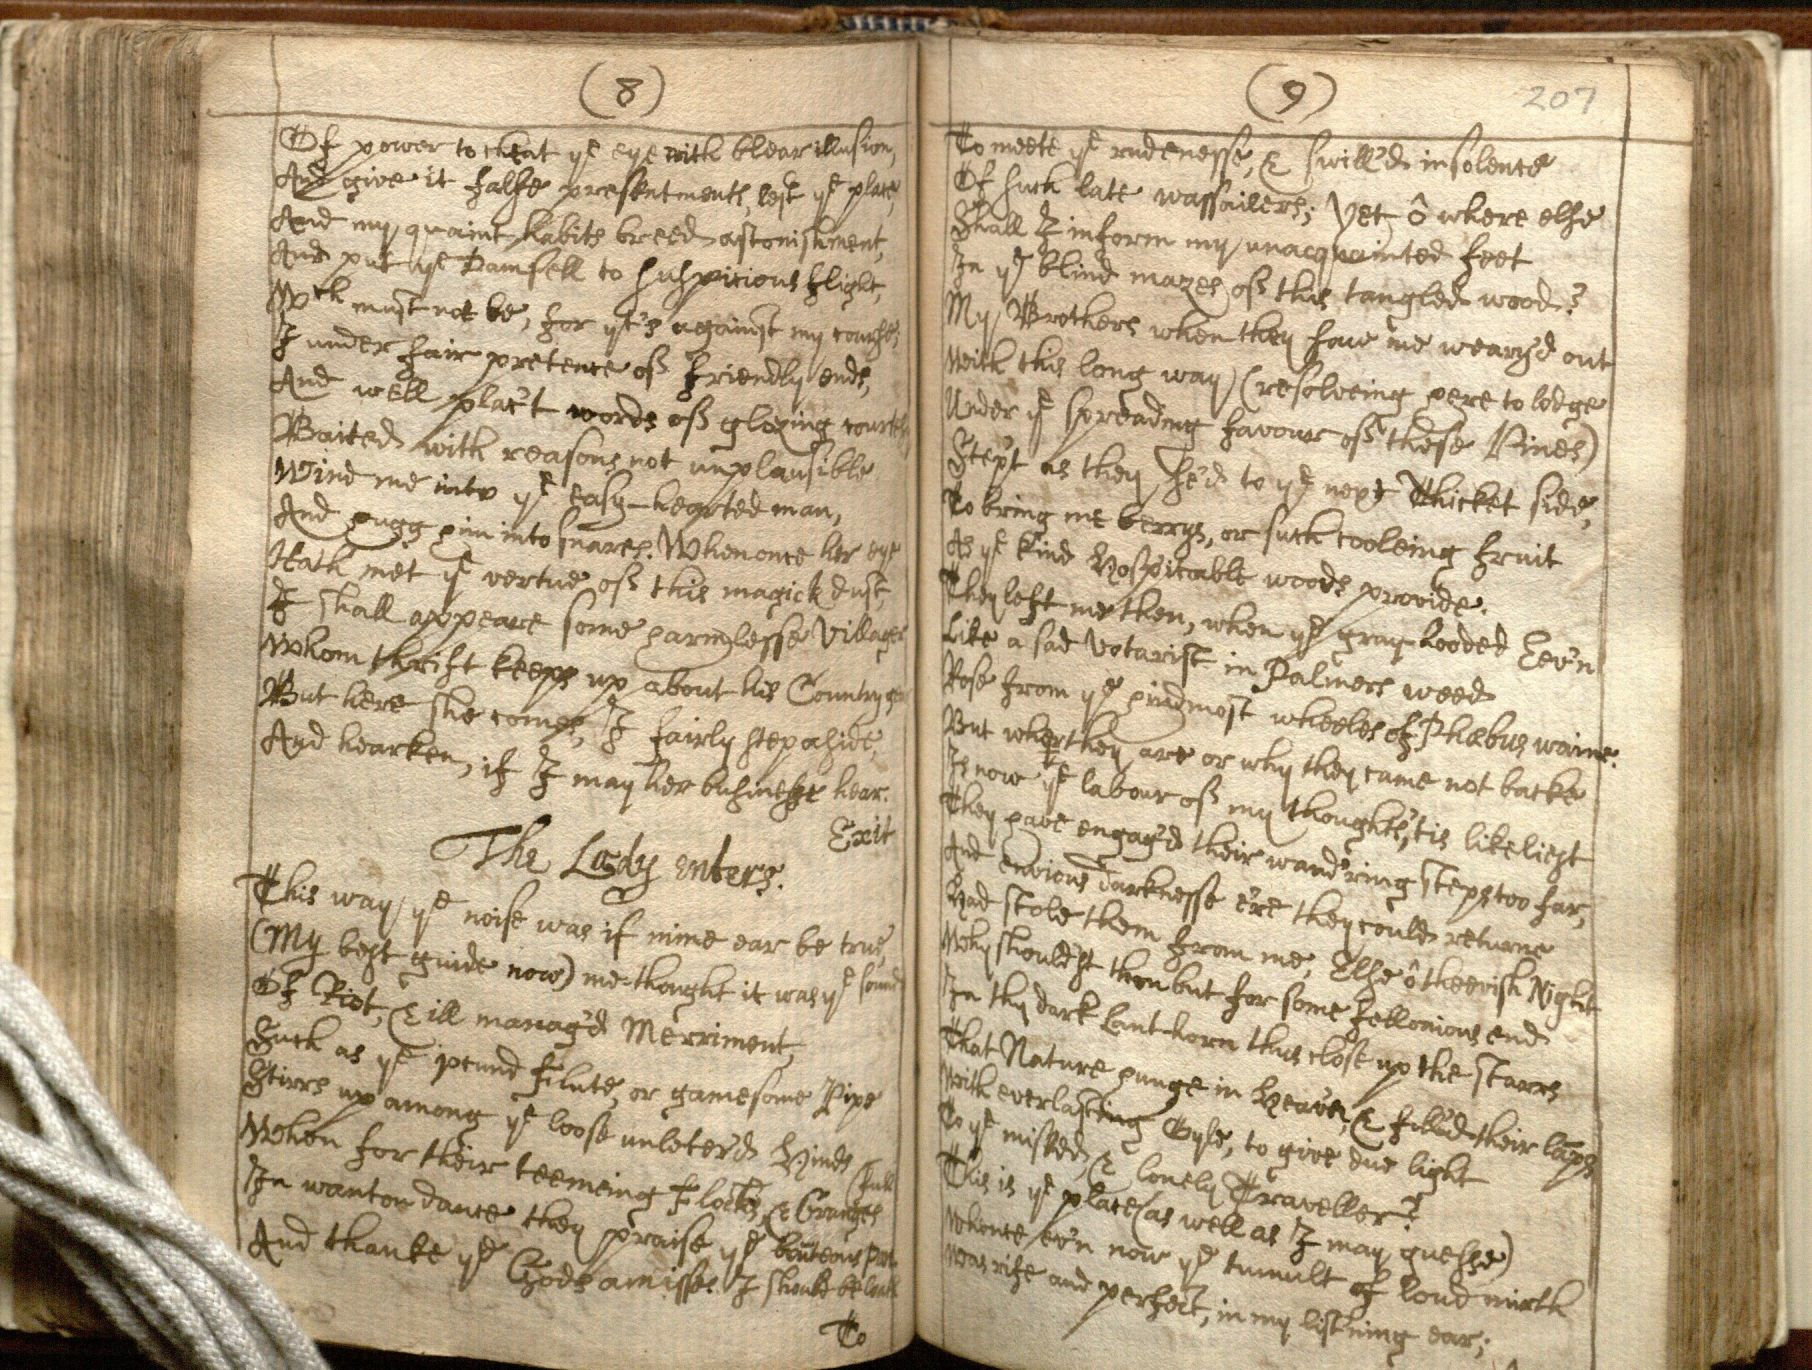 (8)
Of power to cheat yᵉ eye with blear illusion,
And give it false presentments, lest yᵉ place,
And my quaint habits breed astonishment,
And put yᵉ Damsell to suspicious flight,
Wᶜʰ must not be, for yᵗ's against my course;
I under fair pretence of friendly ends,
And well plac't words of glozing courtesy
Baited with reasons not unplausible
Wind me into yᵉ easy-hearted man,
And hugg him into snares. When once her eye
Hath met yᵉ vertue of this magick dust,
I shall appeare some harmlesse Villager
Whom thrift keeps up about his Country gear
But here she comes, I fairly step aside,
And hearken, if I may her businesse hear.
Exit
The Lady enters.
This way yᵉ noise was if mine ear be true,
(My best guide now) me-thought it was yᵉ sound
Of Riot, & ill manag'd Merriment,
Such as yᵉ jocund flute, or gamesome Pipe
Stirrs up among yᵉ loose unleter'd Hinds
When for their teemeing flocks, & Granges (full
In wanton dance they praise yᵉ bouteous Pan
And thanke yᵉ Gods amisse. I should be loath
To
(9)
207
To meete yᵉ rudenesse, & swill'd insolence
Of such late wassailers; Yet ô where else
Shall I inform my unacquainted feet
In yᵉ blind mazes of this tangled wood?
My Brothers when they saw me weary'd out
With this long way, (resolveing here to lodge
Under yᵉ spreading favour of these Pines)
Step't as they se'd to yᵉ next Thicket side,
To bring me berrys, or such cooleing fruit
As yᵉ kind Hospitable woods provide.
They left me then, when yᵉ gray-hooded Eev'n
Like a sad Votarist in Palmers weed
Rose from yᵉ hindmost wheeles of Phœbus waine.
But where they are or why they came not backe
Is now yᵉ labour of my thoughts, 'tis likeliest
They have engag'd their wand'ring steps too far,
And envious darknesse e're they could returne
Had stole them from me, Else ô theevish Night
Why should'st thou but for some fellonious end
In thy dark Lant-horn thus close up the starrs
That Nature hunge in Heaven, & fill'd their lāps
With everlasting Oyle, to give due light
To yᵉ misled, & lonely Traveller?
This is yᵉ place (as well as I may guesse)
Whence ev'n now yᵉ tumult of loud mirth
Was rife and perfect, in my list'ning ear;